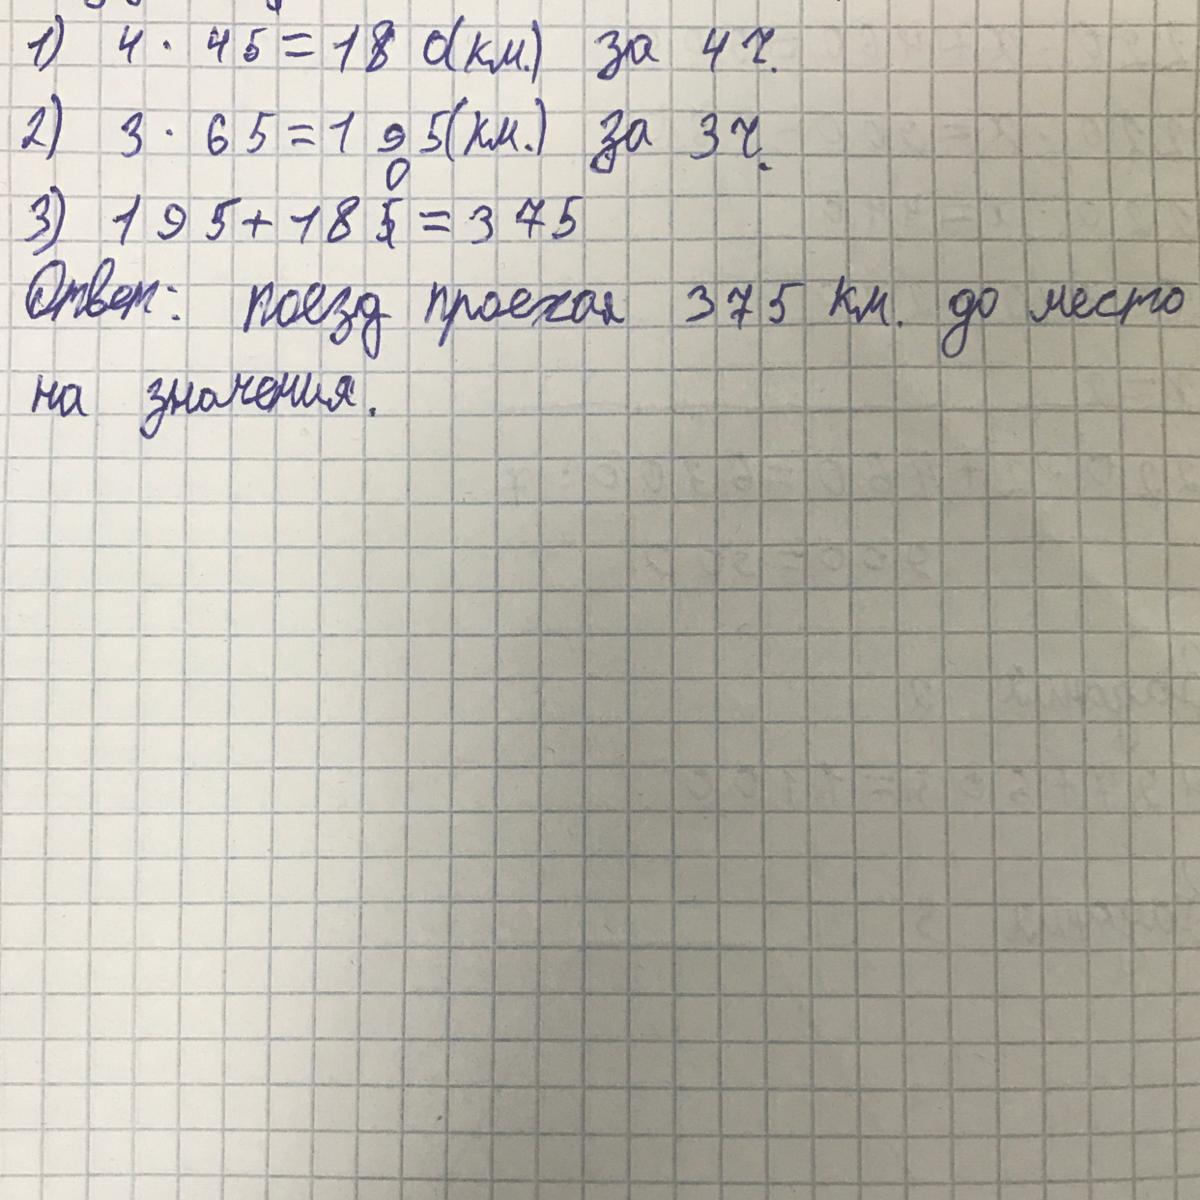 1) 4 · 45 = 180(км.) за 4ч.
2) 3 · 65 = 195(км.) за 3ч.
3) 195 + 180 = 375
Ответ: поезд проехал 375 км. до место
на значения.